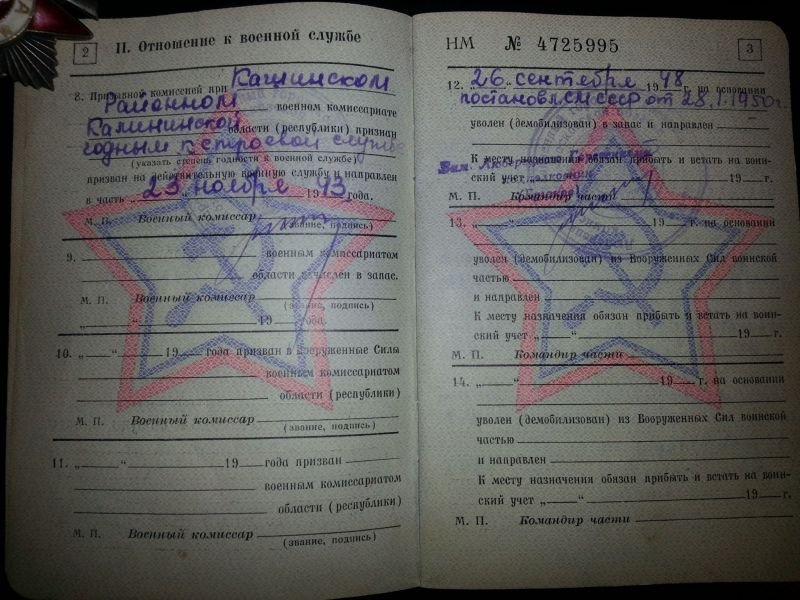 2
II. Отношение к военной службе
8. Призывной комиссией при Кашинском
Районном военном комиссариате
Калининской области (республики) признан
годным к строевой службе
(указать степень годности к военной службе)
призван на действительную военную службу и направлен
в часть „ 23 " ноября 1943 года.
М. П. Военный комиссар
(звание, подпись)
9. военным комиссариатом
области зачислен в запас.
М. П. Военный комиссар
(звание, подпись)
„ " 19 года.
10. „ " 19 года призван в Вооруженные Силы
военным комиссариатом
области (республики)
М. П. Военный комиссар
(звание, подпись)
11. „ " 19 года призван
военным комиссариатом
области (республики)
М. П. Военный комиссар
(звание, подпись)
НМ № 4725995
3
12. „ 26 " сентября 1948 г. на основании
постановл СМ СССР от 28.1.1950г.
уволен (демобилизован) в запас и направлен
К месту назначения обязан прибыть и встать на воин-
ский учет 19 г.
М. П. Командир части
13. „ " 19 г. на основании
уволен (демобилизован) из Вооруженных Сил воинской
частью
и направлен
К месту назначения обязан прибыть и встать на воин-
ский учет „ " 19 г.
М. П. Командир части
14. „ " 19 г. на основании
уволен (демобилизован) из Вооруженных Сил воинской
частью
и направлен
К месту назначения обязан прибыть и встать на воин-
ский учет „ " 19 г.
М. П. Командир части